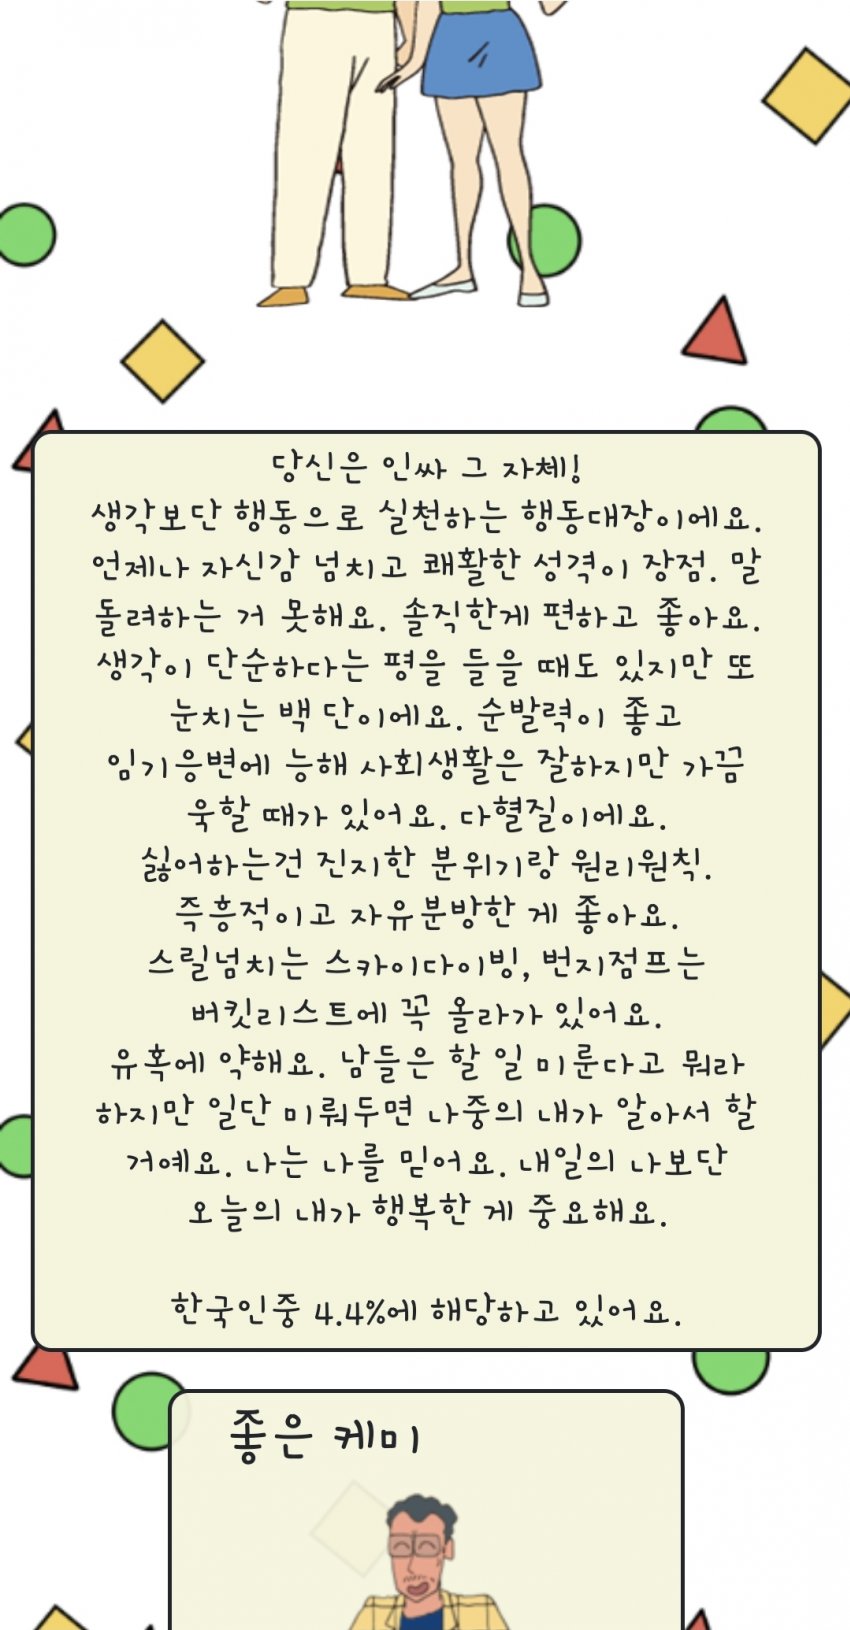 당신은 인싸 그 자체!
생각보단 행동으로 실천하는 행동대장이에요.
언제나 자신감 넘치고 쾌활한 성격이 장점. 말
돌려하는 거 못해요. 솔직한게 편하고 좋아요.
생각이 단순하다는 평을 들을 때도 있지만 또
눈치는 백 단이에요. 순발력이 좋고
임기응변에 능해 사회생활은 잘하지만 가끔
욱할 때가 있어요. 다혈질이에요.
싫어하는건 진지한 분위기랑 원리원칙.
즉흥적이고 자유분방한 게 좋아요.
스릴넘치는 스카이다이빙, 번지점프는
버킷리스트에 꼭 올라가 있어요.
유혹에 약해요. 남들은 할 일 미룬다고 뭐라
하지만 일단 미뤄두면 나중의 내가 알아서 할
거예요. 나는 나를 믿어요. 내일의 나보단
오늘의 내가 행복한 게 중요해요.
한국인중 4.4%에 해당하고 있어요.
좋은 케미